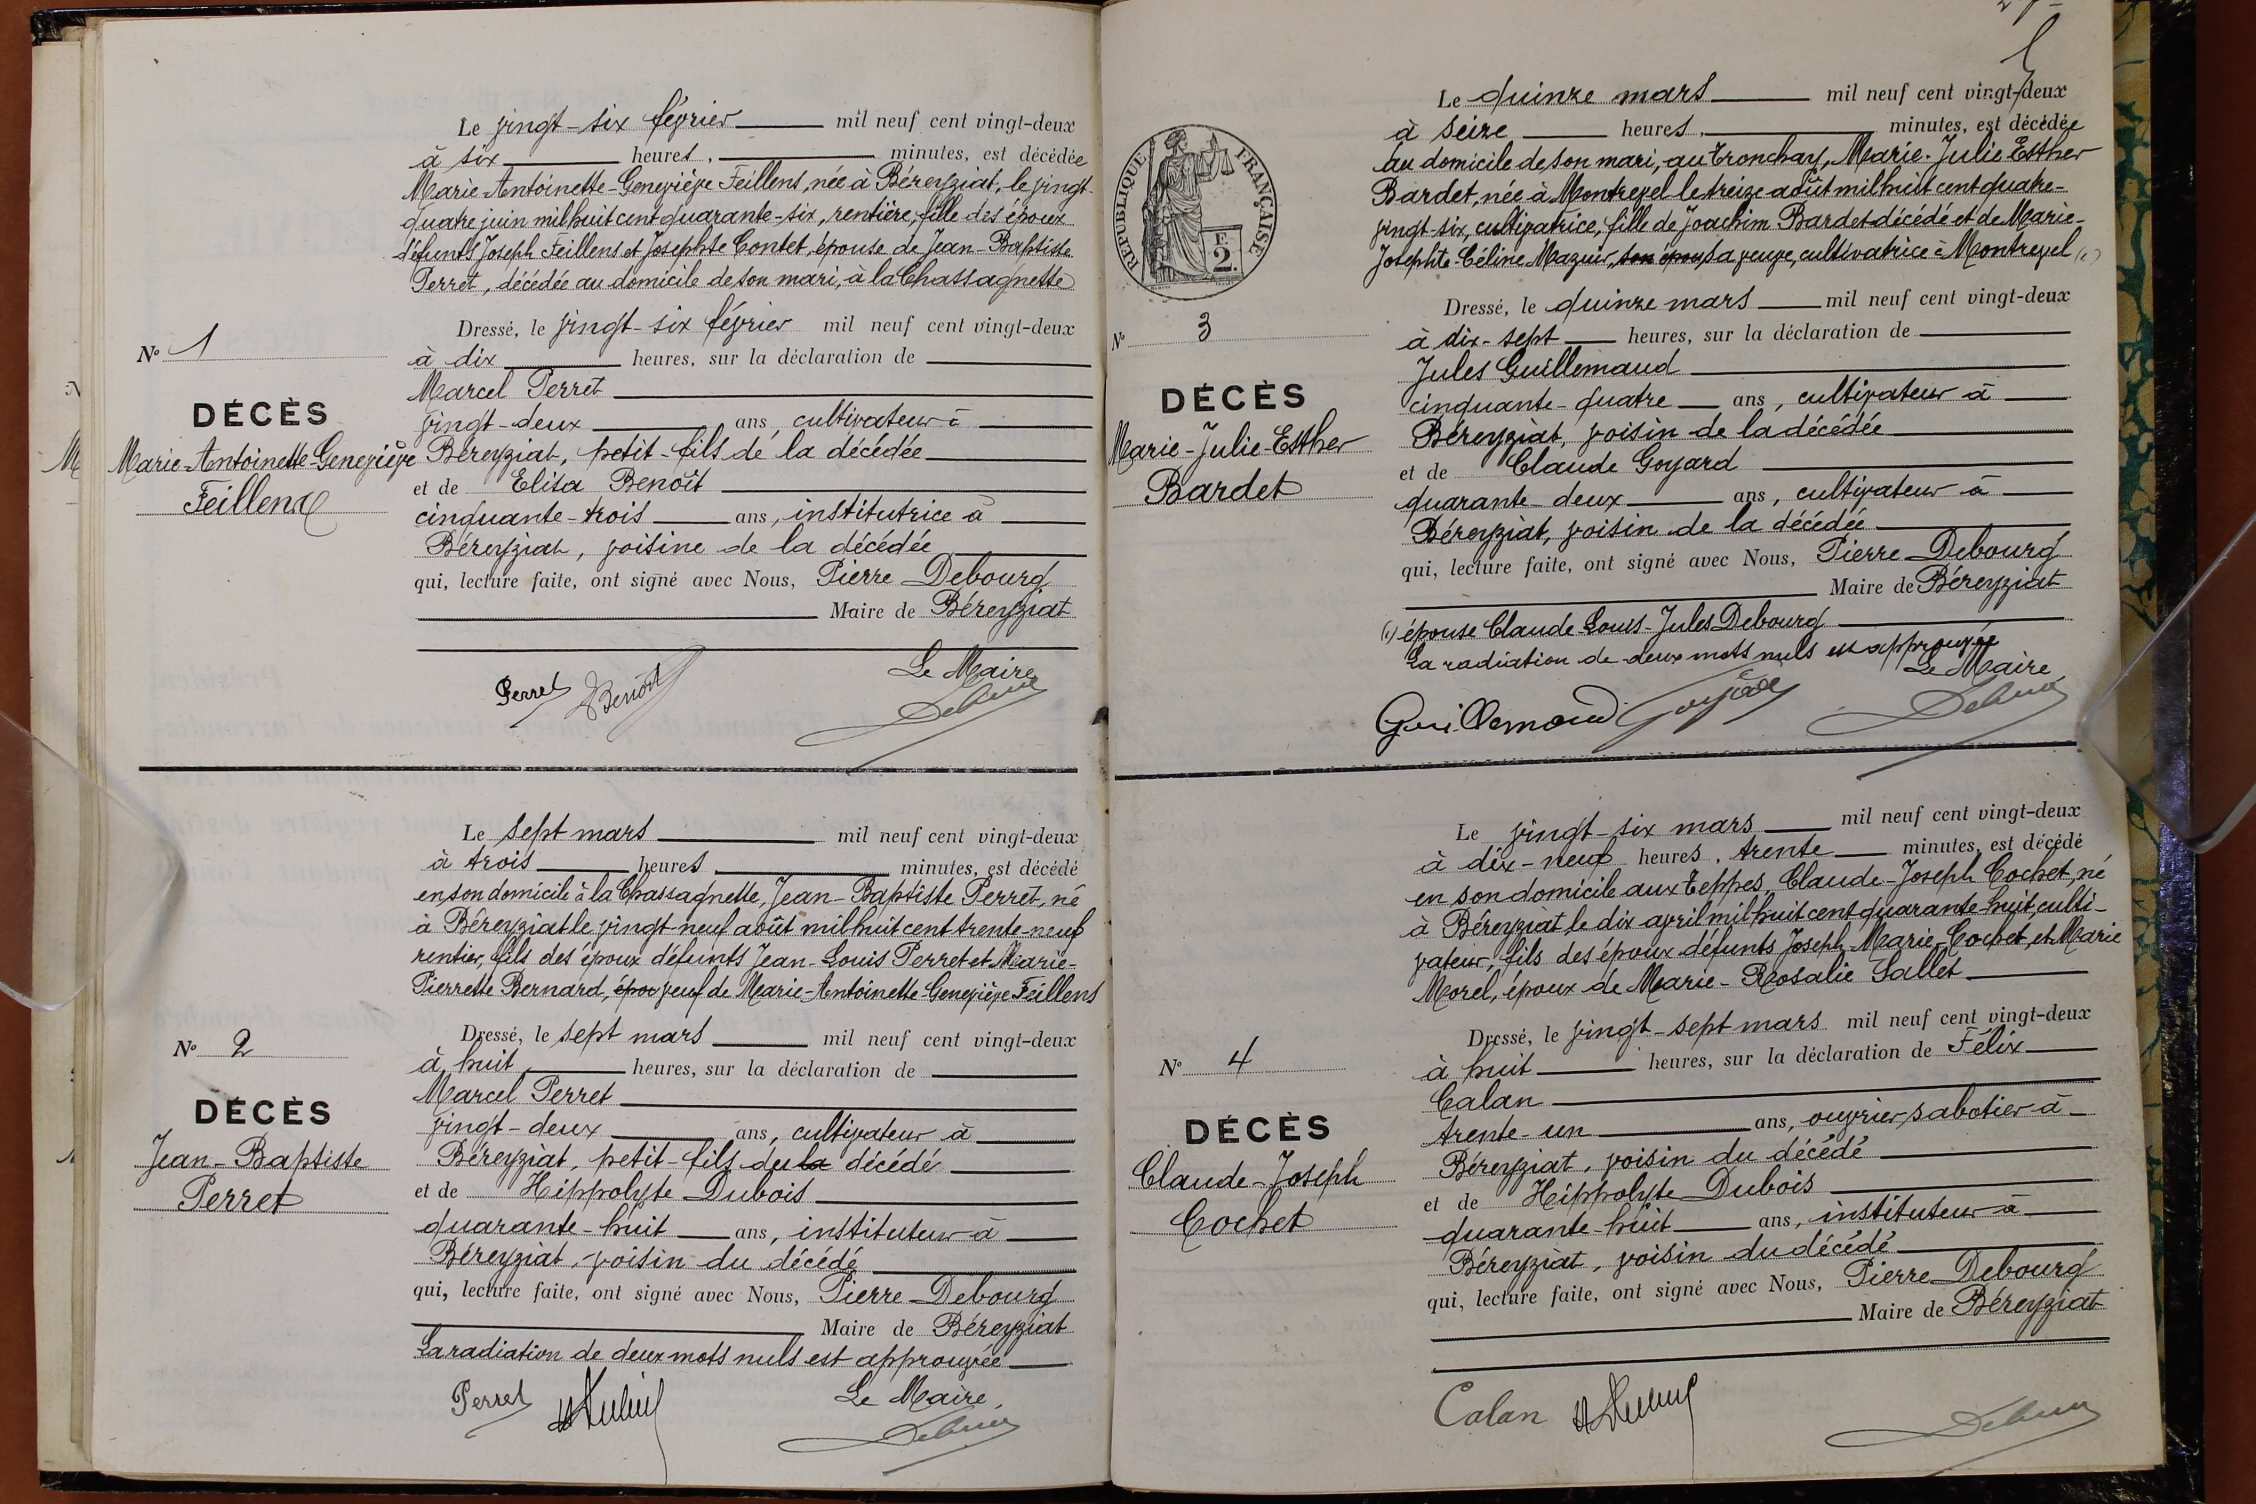 Le vingt-six février mil neuf cent vingt-deux
à six heures, minutes, est décédée
Marie-Antoinette-Geneviève Feillens, née à Béreyziat, le vingt-
quatre juin mil huit cent quarante-six, rentière, fille des époux
défunts Joseph Feillens et Josephte Contet, épouse de Jean-Baptiste
Perret, décédée au domicile de son mari, à la Chassagnette
Dressé, le vingt-six février mil neuf cent vingt-deux
à dix heures, sur la déclaration de
Marcel Perret
vingt-deux ans, cultivateur à
Béreyziat, petit-fils de la décédée
et de Elisa Benoît
cinquante-trois ans, institutrice à
Béreyziat, voisine de la décédée
qui, lecture faite, ont signé avec Nous, Pierre Debourg
Maire de Béreyziat
Le Maire
Perret Benoît
No 1
DÉCÈS
Marie-Antoinette-Geneviève
Feillens
Le sept mars mil neuf cent vingt-deux
à trois heures minutes, est décédé
en son domicile à la Chassagnette, Jean-Baptiste Perret, né
à Béreyziat le vingt-neuf août mil huit cent trente-neuf
rentier, fils des époux défunts Jean-Louis Perret et Marie-
Pierrette Bernard, épou veuf de Marie-Antoinette-Geneviève Feillens
Dressé, le sept mars mil neuf cent vingt-deux
à huit heures, sur la déclaration de
Marcel Perret
vingt-deux ans, cultivateur à
Béreyziat, petit-fils du la décédé
et de Hippolyte Dubois
quarante-huit ans, instituteur à
Béreyziat, voisin du décédé
qui, lecture faite, ont signé avec Nous, Pierre Debourg
Maire de Béreyziat
La radiation de deux mots nuls est approuvée
Le Maire
Perret
No 2
DÉCÈS
Jean-Baptiste
Perret
RÉPUBLIQUE FRANÇAISE
F.
2.
Le quinze mars mil neuf cent vingt-deux
à seize heures, minutes, est décédée
au domicile de son mari, au Tronchay, Marie-Julie Esther
Bardet, née à Montrevel le treize août mil huit cent quatre-
vingt-six, cultivatrice, fille de Joachim Bardet décédé et de Marie-
Josephte-Céline Mazuir, son épou sa veuve, cultivatrice à Montrevel (1)
Dressé, le quinze mars mil neuf cent vingt-deux
à dix-sept heures, sur la déclaration de
Jules Guillemaud
cinquante-quatre ans, cultivateur à
Béreyziat, voisin de la décédée
et de Claude Goyard
quarante-deux ans, cultivateur à
Béreyziat, voisin de la décédée
qui, lecture faite, ont signé avec Nous, Pierre Debourg
Maire de Béreyziat
(1) épouse Claude-Louis-Jules Debourg
La radiation de deux mots nuls est approuvée
Le Maire
Guillemaud Goyard
No 3
DÉCÈS
Marie-Julie-Esther
Bardet
Le vingt-six mars mil neuf cent vingt-deux
à dix-neuf heures, trente minutes, est décédé
en son domicile aux Teppes, Claude-Joseph Cochet, né
à Béreyziat le dix avril mil huit cent quarante-huit, culti-
vateur, fils des époux défunts Joseph-Marie-Cochet et Marie
Morel, époux de Marie-Rosalie Sallet
Dressé, le vingt-sept mars mil neuf cent vingt-deux
à huit heures, sur la déclaration de Félix
Calan
trente-un ans, ouvrier sabotier à
Béreyziat, voisin du décédé
et de Hippolyte Dubois
quarante-huit ans, instituteur à
Béreyziat, voisin du décédé
qui, lecture faite, ont signé avec Nous, Pierre Debourg
Maire de Béreyziat
Calan
No 4
DÉCÈS
Claude-Joseph
Cochet